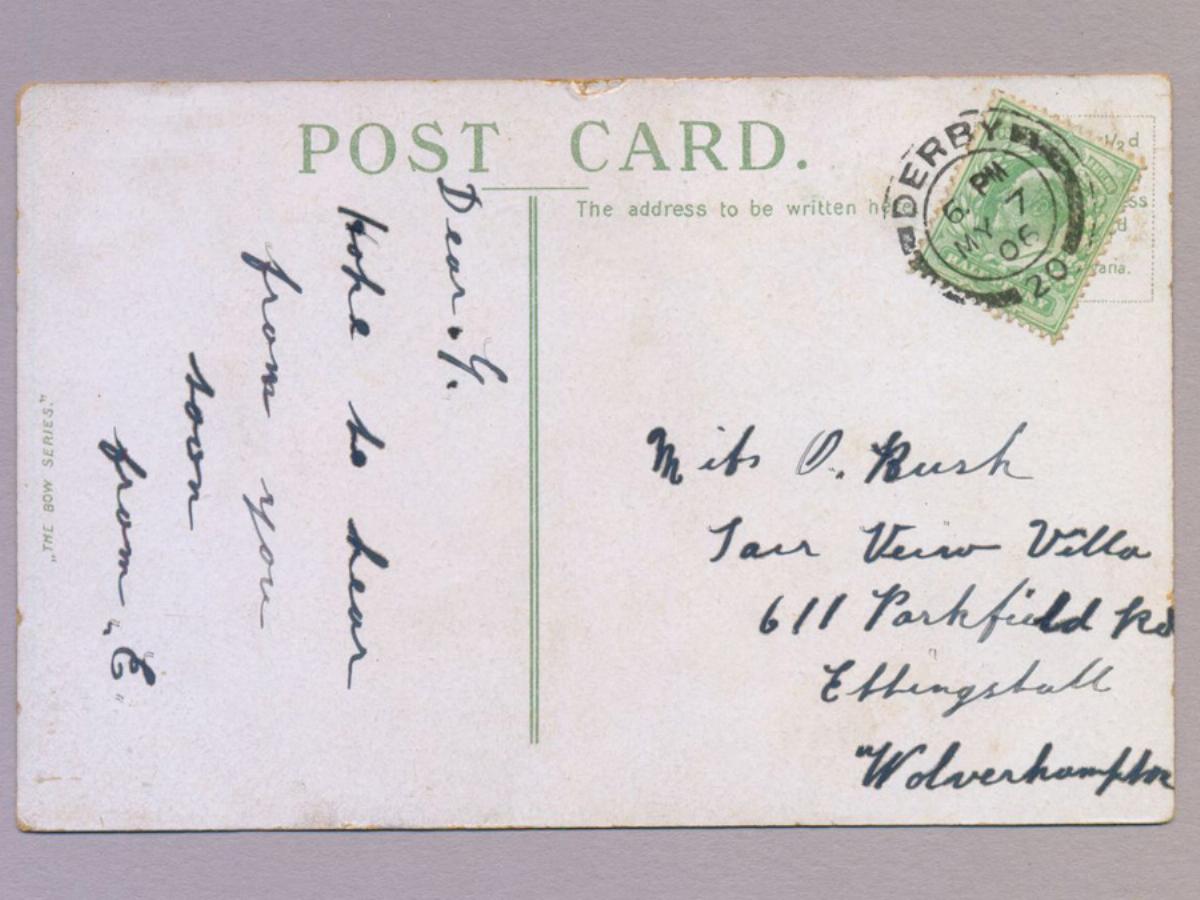 POST CARD.
The address to be written he
½d
ss
d
aria.
DERBY
6. PM 7
MY 06
20
Dear. G.
Hope to hear
from you
soon
from "E"
Miss O. Rush
Fair Veiw Villa
611 Parkfield Rd
Ettingshall
"Wolverhampton
„THE BOW SERIES."